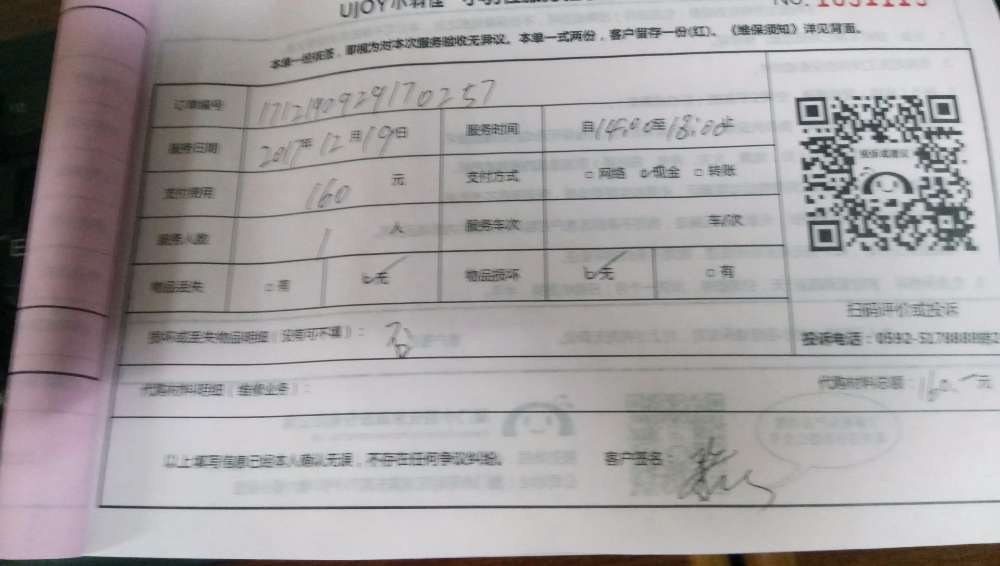 UJOY小羽佳
NO.
本单一经接签，即视为对本次服务验收无异议。本单一式两份，客户留存一份(红)。《维保须知》详见背面。
订单编号 171214092917 0257
服务日期 2017年12月19日 服务时间 自14:00至18:00止
支付费用 160 元 支付方式 □网络 ☑现金 □转账
服务人数 1 人 服务车次 车/次
物品丢失 □有 ☑无 物品损坏 ☑无 □有
投诉或建议
扫码评价或投诉
损坏或丢失物品明细（没有可不填）：
投诉电话：0592-5178888转2
代购材料明细（维修业务）： 代购材料总额：160.- 元
以上填写信息已经本人确认无误，不存在任何争议纠纷。 客户签名：